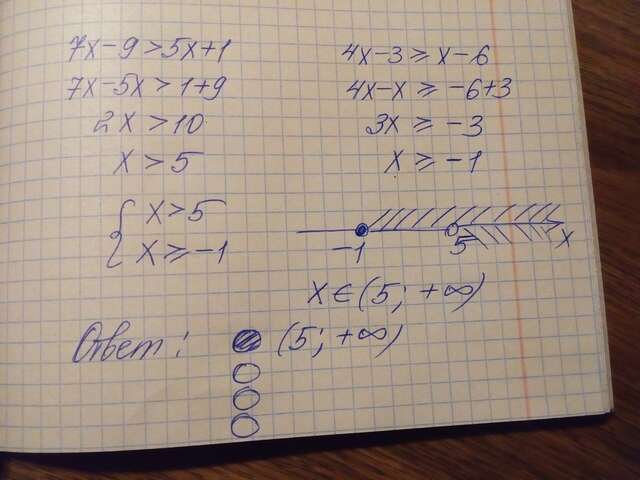 7x-9>5x+1
7x-5x>1+9
2x>10
x>5
4x-3⩾x-6
4x-x⩾-6+3
3x⩾-3
x⩾-1
{ x>5
x⩾-1
-1 5 x
x∈(5; +∞)
Ответ: (5; +∞)